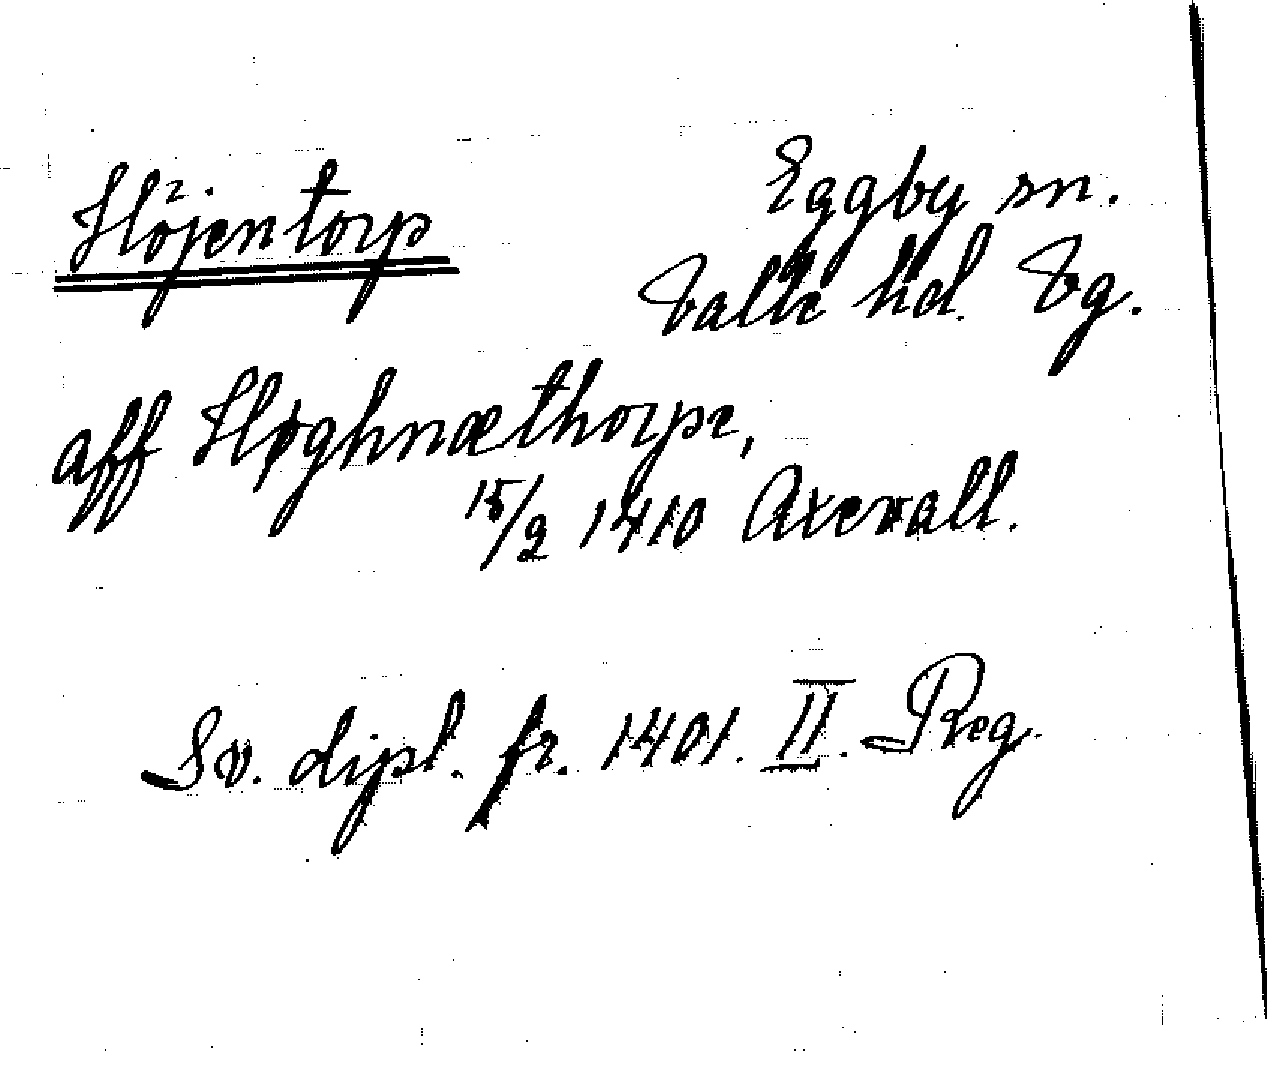 Höjentorp
Eggby sn.
Valle hd. Vg.
aff Høghnæthorpe,
15/2 1410 Axevall.
Sv. dipl. fr. 1401. II. Reg.